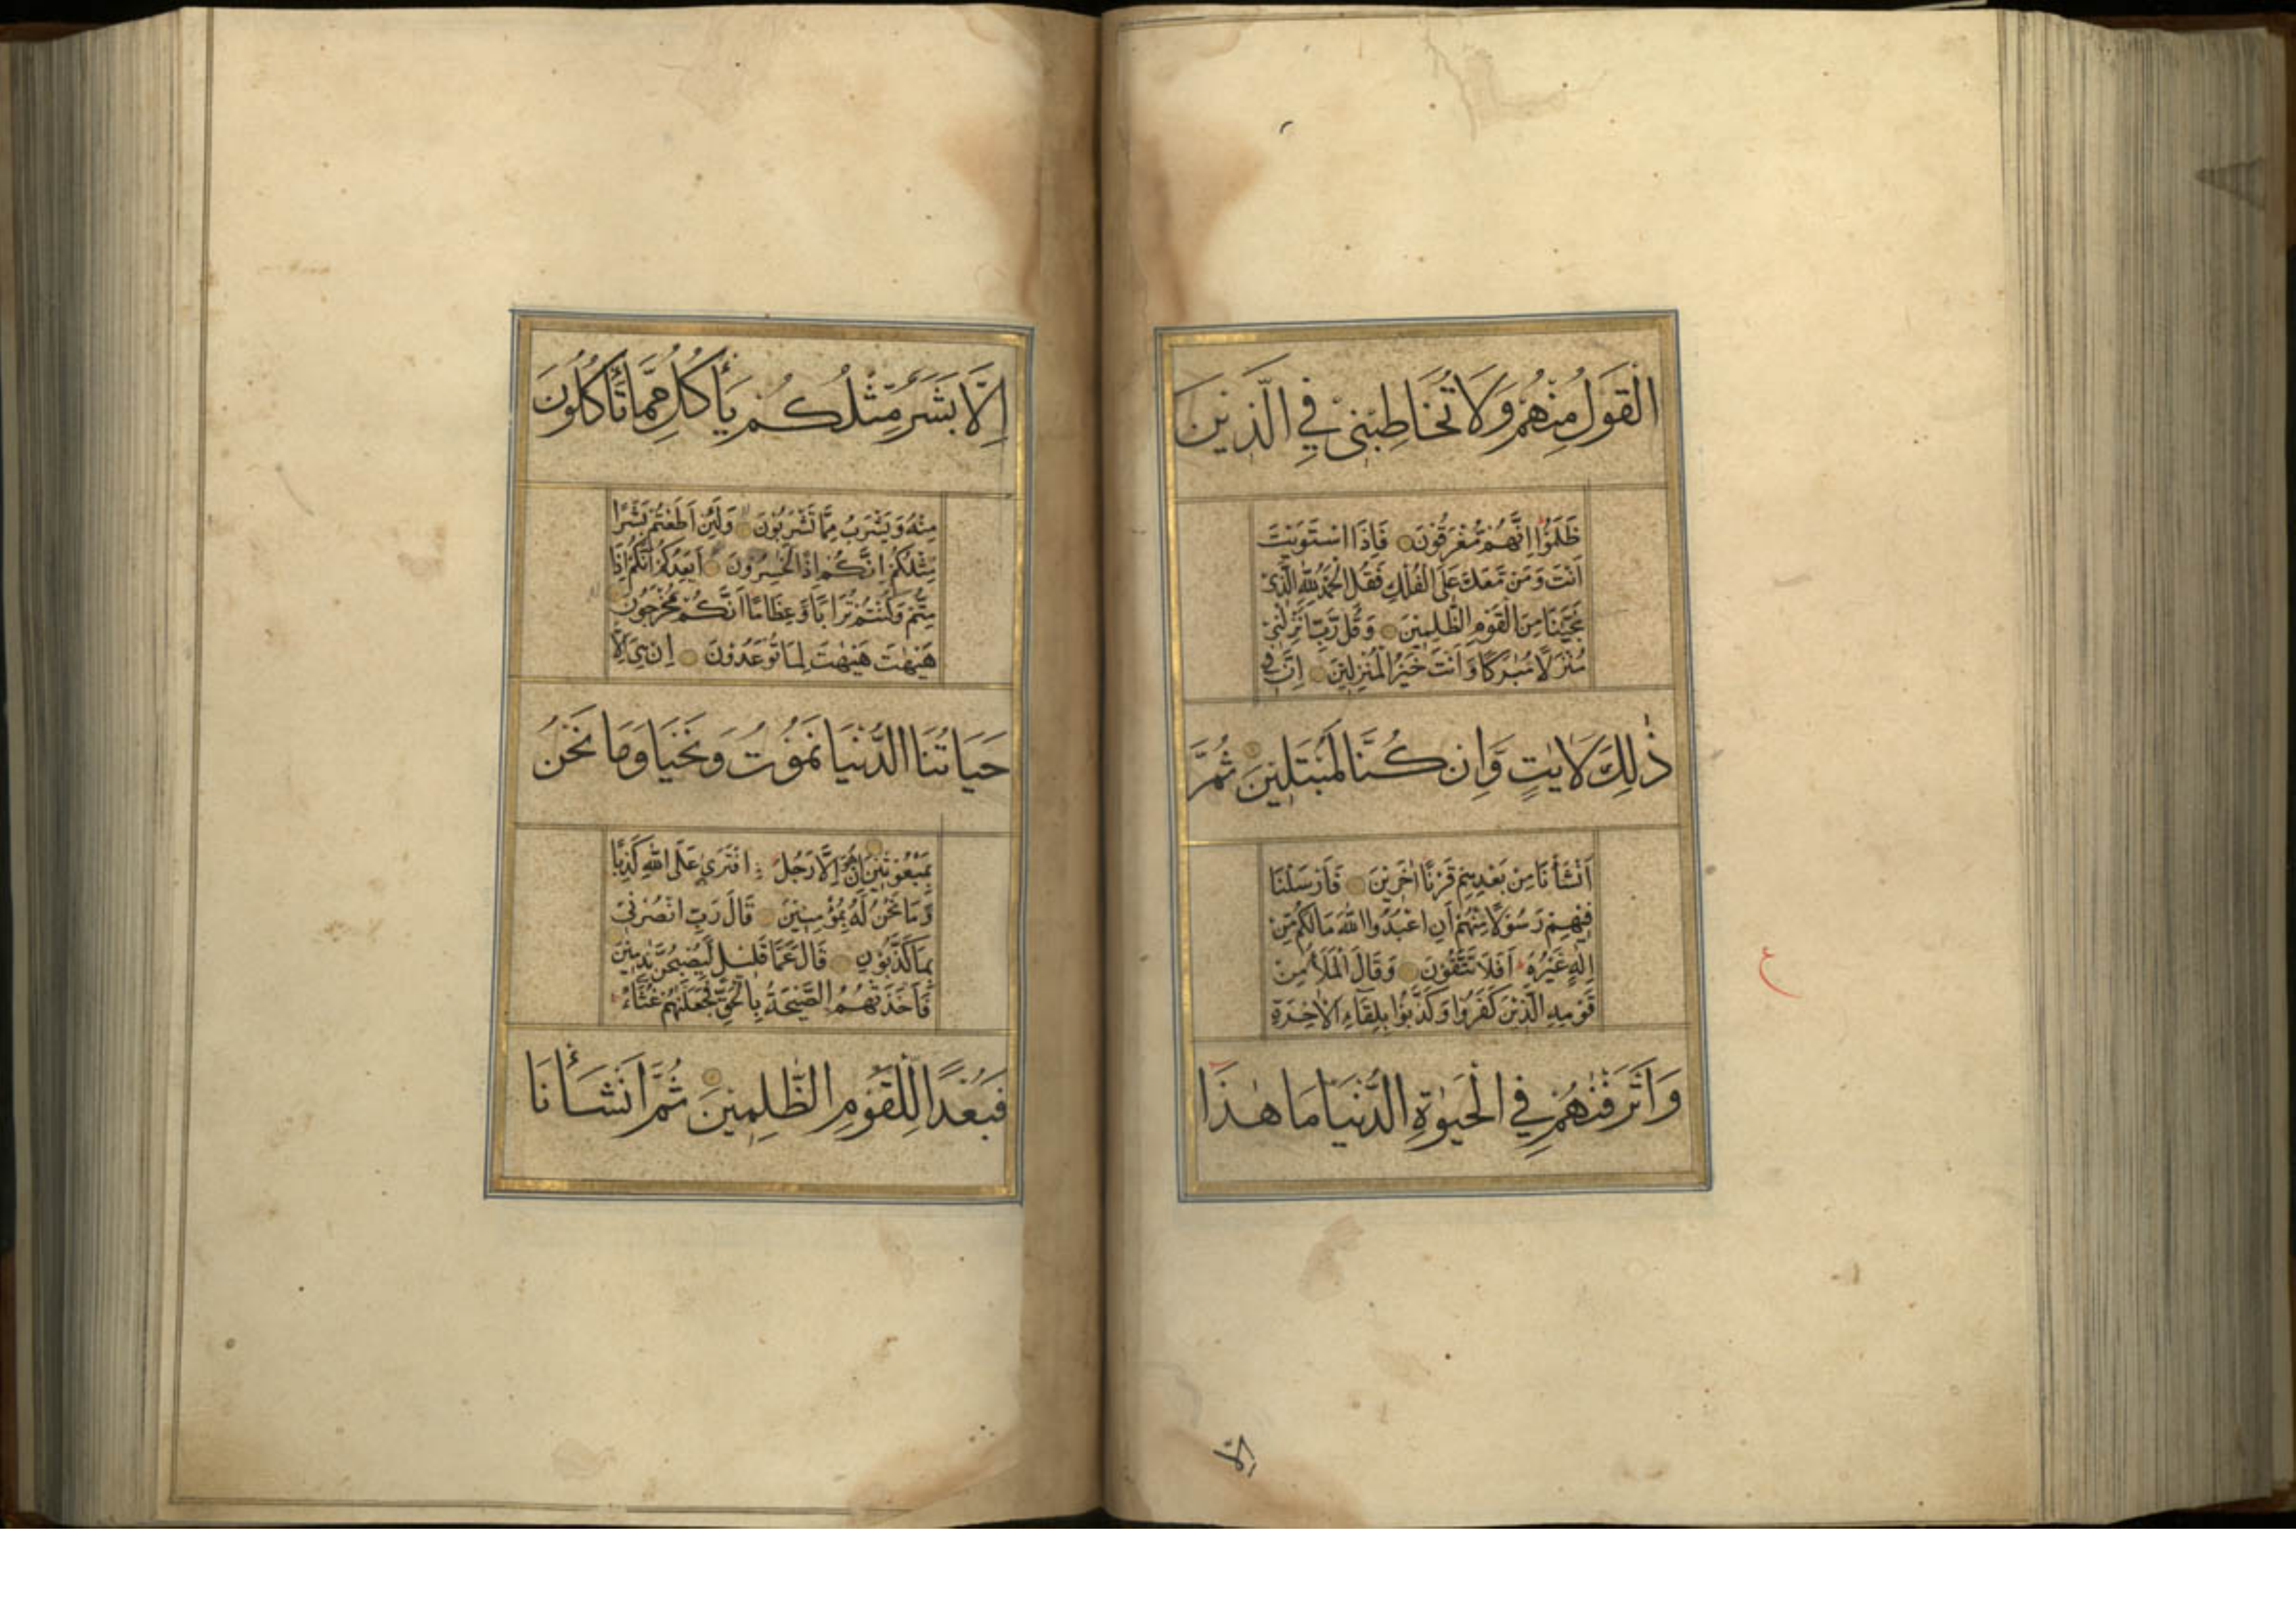 الْقَوْلُ مِنْهُمْ وَلَا تُخَاطِبْنِي فِي الَّذِينَ
ظَلَمُوا اِنَّهُمْ مُغْرَقُونَ فَاِذَا اسْتَوَيْتَ
اَنْتَ وَمَنْ مَعَكَ عَلَى الْفُلْكِ فَقُلِ الْحَمْدُ لِلّٰهِ الَّذِي
نَجّٰينَا مِنَ الْقَوْمِ الظّٰلِمِينَ وَقُلْ رَبِّ اَنْزِلْنِي
مُنْزَلًا مُبٰرَكًا وَاَنْتَ خَيْرُ الْمُنْزِلِينَ اِنَّ فِي
ذٰلِكَ لَاٰيٰتٍ وَاِنْ كُنَّا لَمُبْتَلِينَ ثُمَّ
اَنْشَأْنَا مِنْ بَعْدِهِمْ قَرْنًا اٰخَرِينَ فَاَرْسَلْنَا
فِيهِمْ رَسُولًا مِنْهُمْ اَنِ اعْبُدُوا اللّٰهَ مَا لَكُمْ مِنْ
اِلٰهٍ غَيْرُهُ اَفَلَا تَتَّقُونَ وَقَالَ الْمَلَأُ مِنْ
قَوْمِهِ الَّذِينَ كَفَرُوا وَكَذَّبُوا بِلِقَاءِ الْاٰخِرَةِ
وَاَتْرَفْنٰهُمْ فِي الْحَيٰوةِ الدُّنْيَا مَا هٰذَا
ع
اِلَّا
اِلَّا بَشَرٌ مِثْلُكُمْ يَأْكُلُ مِمَّا تَأْكُلُونَ
مِنْهُ وَيَشْرَبُ مِمَّا تَشْرَبُونَ وَلَئِنْ اَطَعْتُمْ بَشَرًا
مِثْلَكُمْ اِنَّكُمْ اِذًا لَخٰسِرُونَ اَيَعِدُكُمْ اَنَّكُمْ اِذَا
مِتُّمْ وَكُنْتُمْ تُرَابًا وَعِظَامًا اَنَّكُمْ مُخْرَجُونَ
هَيْهٰتَ هَيْهٰتَ لِمَا تُوعَدُونَ اِنْ هِيَ اِلَّا
حَيَاتُنَا الدُّنْيَا نَمُوتُ وَنَحْيَا وَمَا نَحْنُ
بِمَبْعُوثِينَ اِنْ هُوَ اِلَّا رَجُلٌ افْتَرٰى عَلَى اللّٰهِ كَذِبًا
وَمَا نَحْنُ لَهُ بِمُؤْمِنِينَ قَالَ رَبِّ انْصُرْنِي
بِمَا كَذَّبُونِ قَالَ عَمَّا قَلِيلٍ لَيُصْبِحُنَّ نٰدِمِينَ
فَاَخَذَتْهُمُ الصَّيْحَةُ بِالْحَقِّ فَجَعَلْنٰهُمْ غُثَاءً
فَبُعْدًا لِلْقَوْمِ الظّٰلِمِينَ ثُمَّ اَنْشَأْنَا